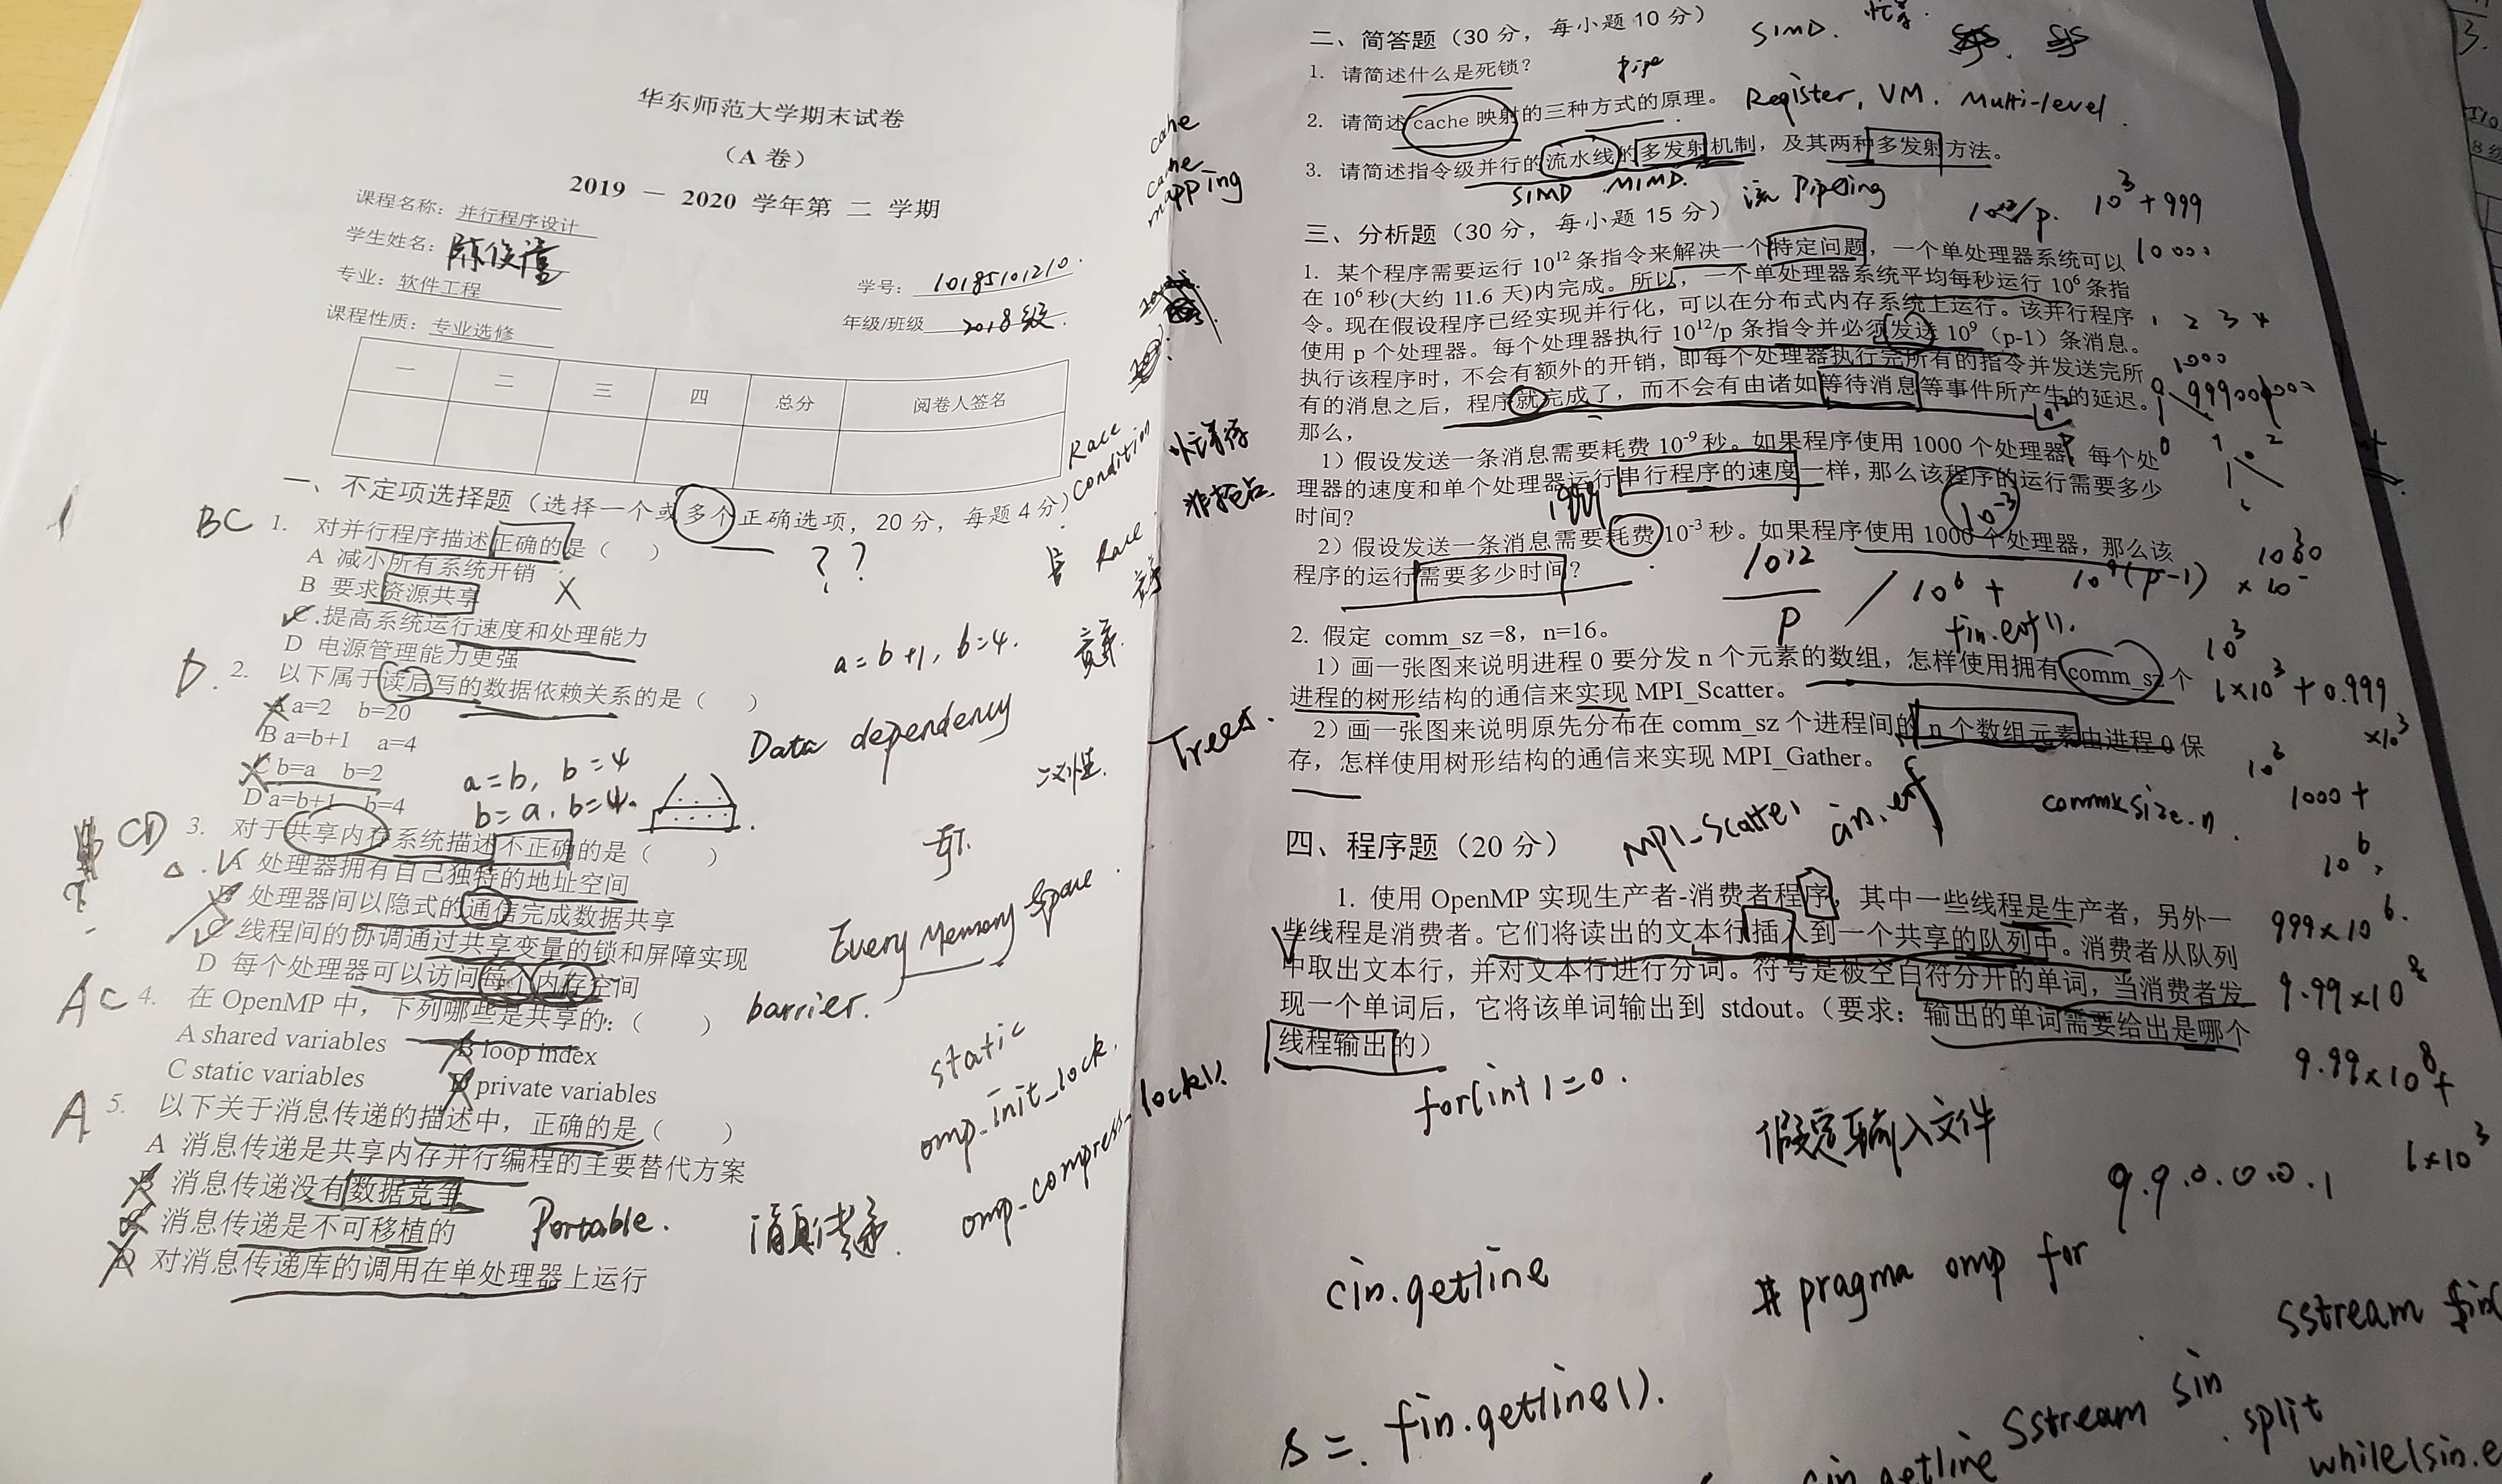 华东师范大学期末试卷
（A 卷）
2019 — 2020 学年第 二 学期
课程名称：并行程序设计
学生姓名：
专业：软件工程
学号：10185101210
课程性质：专业选修
年级/班级 2018级
一 二 三 四 总分 阅卷人签名
一、不定项选择题（选择一个或多个正确选项，20 分，每题 4 分）
BC 1. 对并行程序描述正确的是（ ）
A 减小所有系统开销
B 要求资源共享
C 提高系统运行速度和处理能力
D 电源管理能力更强
??
a=b+1, b=4.
D. 2. 以下属于读后写的数据依赖关系的是（ ）
A a=2 b=20
B a=b+1 a=4
C b=a b=2
D a=b+1 b=4
a=b, b=4
b=a, b=4.
Data dependency
CD 3. 对于共享内存系统描述不正确的是（ ）
A 处理器拥有自己独特的地址空间
B 处理器间以隐式的通信完成数据共享
C 线程间的协调通过共享变量的锁和屏障实现
D 每个处理器可以访问每个内存空间
Every Memory Space.
barrier.
AC 4. 在 OpenMP 中，下列哪些是共享的：（ ）
A shared variables B loop index
C static variables D private variables
static
omp_init_lock.
A 5. 以下关于消息传递的描述中，正确的是（ ）
A 消息传递是共享内存并行编程的主要替代方案
B 消息传递没有数据竞争
C 消息传递是不可移植的
D 对消息传递库的调用在单处理器上运行
Portable.
消息传递.
omp-compress-lock().
cache
cache
mapping
Race
Condition
Race
Trees.
二、简答题（30 分，每小题 10 分）
SIMD.
1. 请简述什么是死锁？
pipe
2. 请简述 cache 映射的三种方式的原理。
Register, VM. Multi-level.
3. 请简述指令级并行的流水线的多发射机制，及其两种多发射方法。
SIMD MIMD.
三、分析题（30 分，每小题 15 分）
10³+999
10000
1. 某个程序需要运行 10¹² 条指令来解决一个特定问题，一个单处理器系统可以
在 10⁶ 秒(大约 11.6 天)内完成。所以，一个单处理器系统平均每秒运行 10⁶ 条指
令。现在假设程序已经实现并行化，可以在分布式内存系统上运行。该并行程序
使用 p 个处理器。每个处理器执行 10¹²/p 条指令并必须发送 10⁹（p-1）条消息。
执行该程序时，不会有额外的开销，即每个处理器执行完所有的指令并发送完所
有的消息之后，程序就完成了，而不会有由诸如等待消息等事件所产生的延迟。
那么，
1）假设发送一条消息需要耗费 10⁻⁹ 秒。如果程序使用 1000 个处理器，每个处
理器的速度和单个处理器运行串行程序的速度一样，那么该程序的运行需要多少
时间？
1 2 3 4
1000
10⁻³
2）假设发送一条消息需要耗费 10⁻³ 秒。如果程序使用 1000 个处理器，那么该
程序的运行需要多少时间？
10¹²/p / 10⁶ + 10⁹(p-1)
2. 假定 comm_sz =8，n=16。
1）画一张图来说明进程 0 要分发 n 个元素的数组，怎样使用拥有 comm_sz 个
进程的树形结构的通信来实现 MPI_Scatter。
2）画一张图来说明原先分布在 comm_sz 个进程间的 n 个数组元素由进程 0 保
存，怎样使用树形结构的通信来实现 MPI_Gather。
10³
1×10³+0.999
×10³
10⁶
1000+
10⁶,
MPI_Scatter
四、程序题（20 分）
1. 使用 OpenMP 实现生产者-消费者程序，其中一些线程是生产者，另外一
些线程是消费者。它们将读出的文本行插入到一个共享的队列中。消费者从队列
中取出文本行，并对文本行进行分词。符号是被空白符分开的单词，当消费者发
现一个单词后，它将该单词输出到 stdout。（要求：输出的单词需要给出是哪个
线程输出的）
999×10⁶.
9.99×10⁸
9.99×10⁸+
1×10³
for(int i=0.
假定输入文件
9.9.0.0.0.1
cin.getline
# pragma omp for
s=. fin.getline().
sstream sin
split